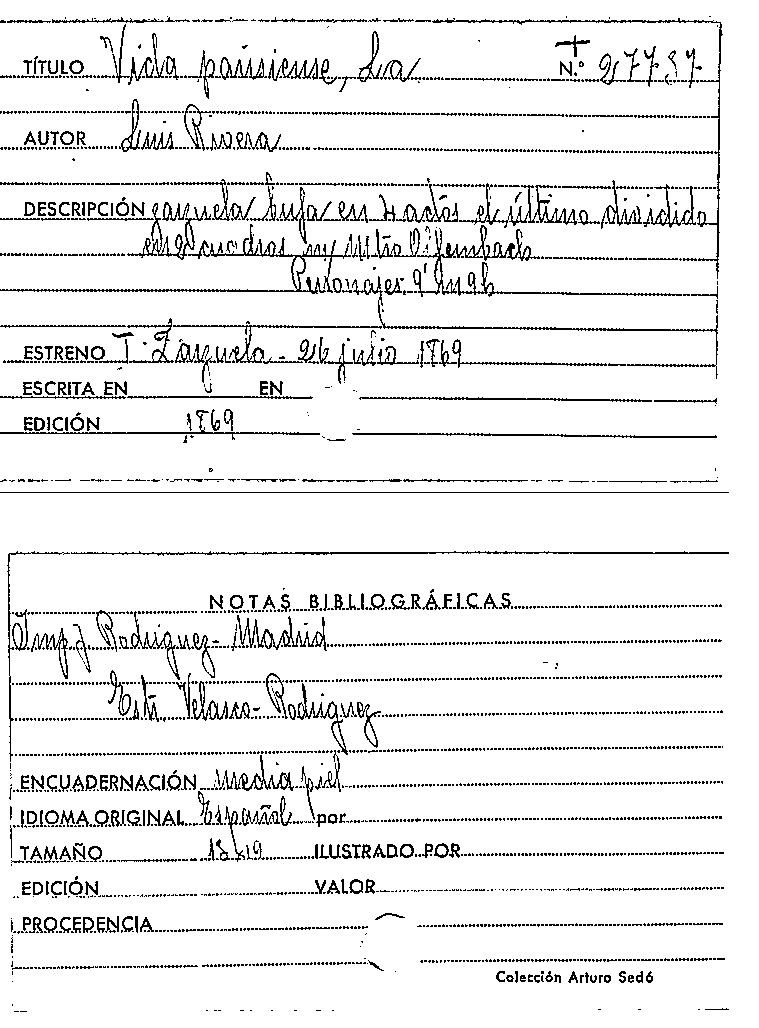 TÍTULO Vida parisiense, La N.º 27757
AUTOR Luis Rivera
DESCRIPCIÓN zarzuela bufa en 4 actos el último dividido
en 2 cuadros m/ Mtro Offembach
Personajes 9
ESTRENO T. Zarzuela - 26 julio 1869
ESCRITA EN EN
EDICIÓN 1869
NOTAS BIBLIOGRÁFICAS
Imp J Rodriguez - Madrid
Velasco - Rodriguez
ENCUADERNACIÓN media piel
IDIOMA ORIGINAL Español por
TAMAÑO 13x19 ILUSTRADO POR
EDICIÓN VALOR
PROCEDENCIA
Colección Arturo Sedó